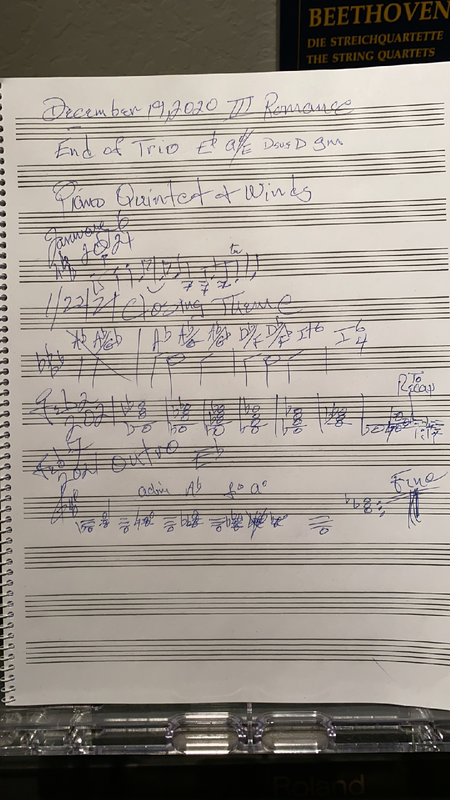 BEETHOVEN
DIE STREICHQUARTETTE
THE STRING QUARTETS
December 19, 2020 III Romance
End of Trio E♭ a°/E Dsus D gm
Piano Quintet + Winds
January 6
2021
1/22/21 Closing Theme
A♭ A♭/G♭ A♭ A♭/G♭ D♭/F It6 I 6 4
To
Recap
Feb 2
2021
Feb 7
2021 Outro E♭
Fine
adim A♭ f° a°
Roland